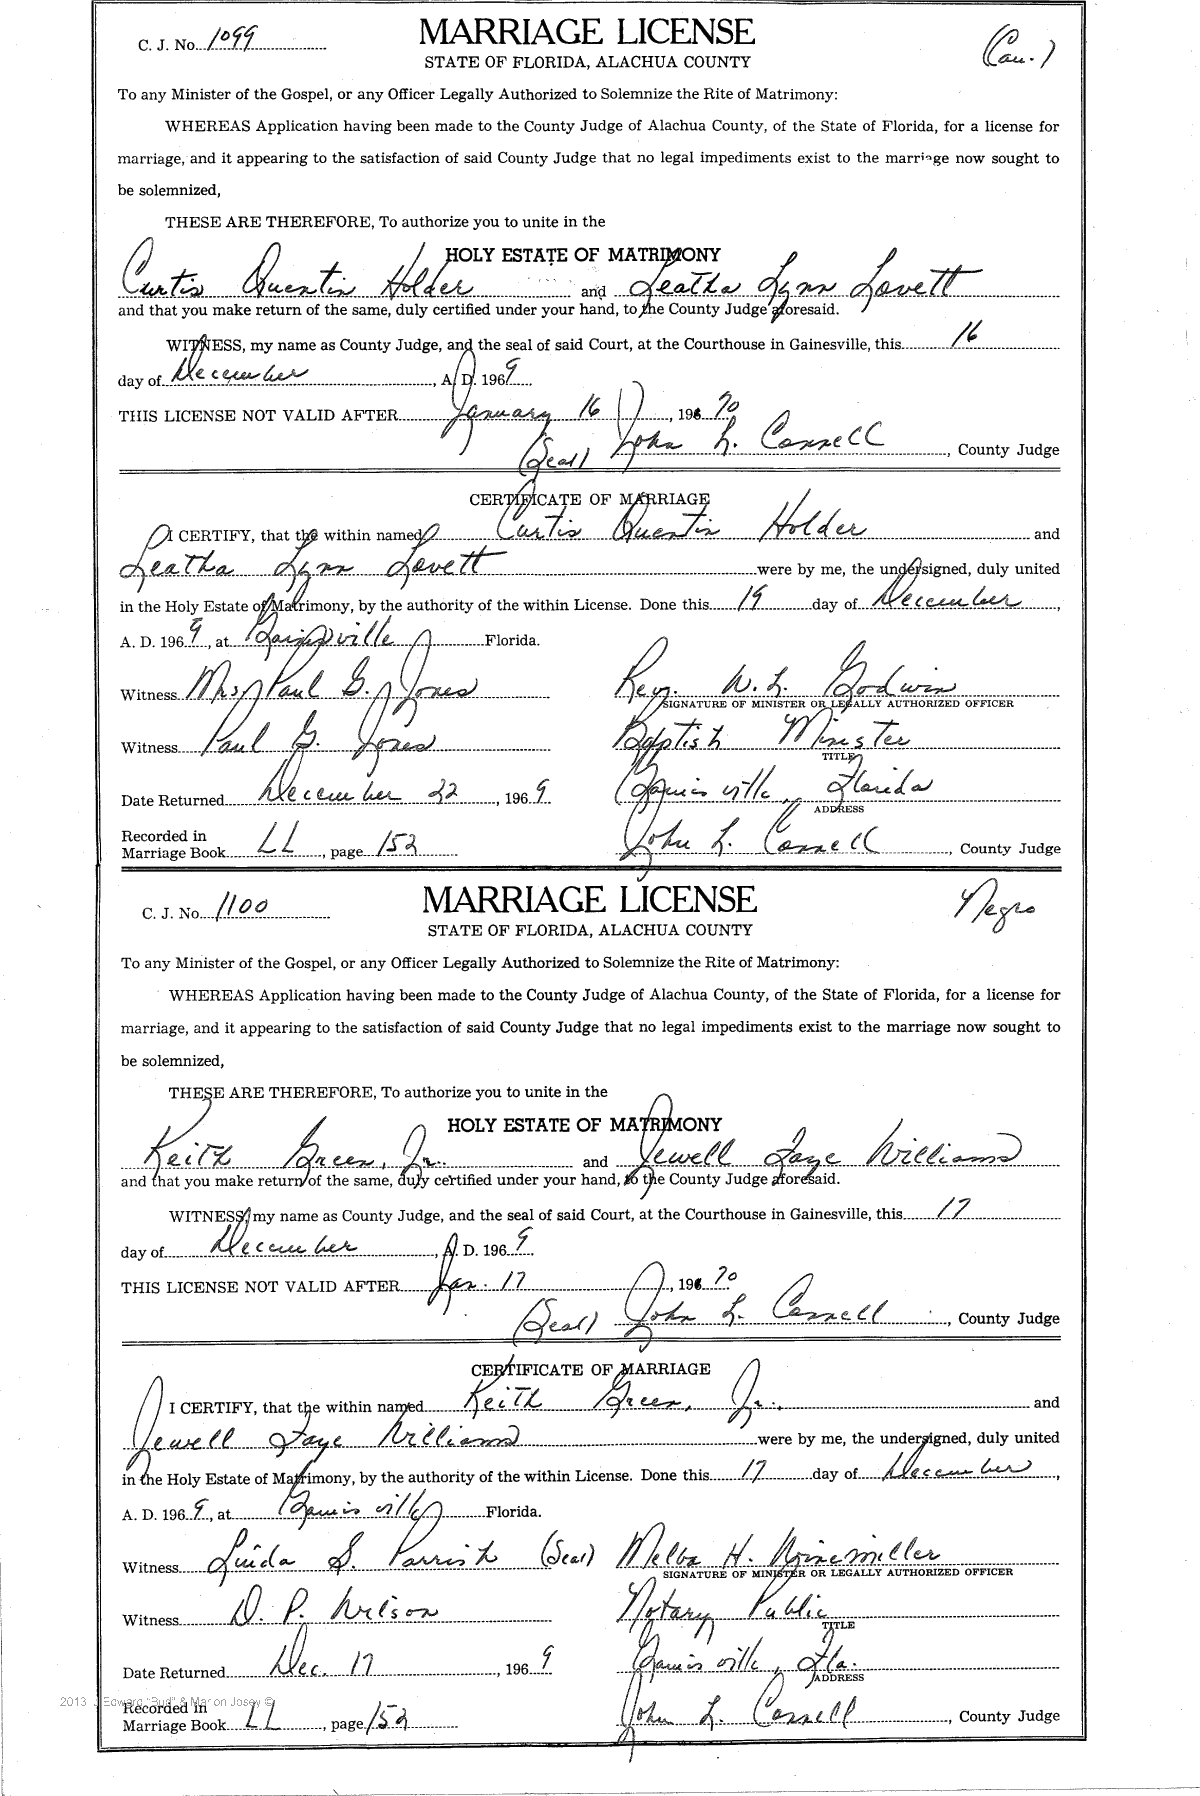 C. J. No. 1099
MARRIAGE LICENSE
(Cau.)
STATE OF FLORIDA, ALACHUA COUNTY
To any Minister of the Gospel, or any Officer Legally Authorized to Solemnize the Rite of Matrimony:
WHEREAS Application having been made to the County Judge of Alachua County, of the State of Florida, for a license for
marriage, and it appearing to the satisfaction of said County Judge that no legal impediments exist to the marriage now sought to
be solemnized,
THESE ARE THEREFORE, To authorize you to unite in the
HOLY ESTATE OF MATRIMONY
Curtis Quentin Holder and Leatha Lynn Lovett
and that you make return of the same, duly certified under your hand, to the County Judge aforesaid.
WITNESS, my name as County Judge, and the seal of said Court, at the Courthouse in Gainesville, this 16
day of December, A. D. 1969
THIS LICENSE NOT VALID AFTER January 16, 1970
(Seal) John L. Connell, County Judge
CERTIFICATE OF MARRIAGE
I CERTIFY, that the within named Curtis Quentin Holder and
Leatha Lynn Lovett were by me, the undersigned, duly united
in the Holy Estate of Matrimony, by the authority of the within License. Done this 19 day of December,
A. D. 1969, at Gainesville Florida.
Witness Mrs. Paul G. Jones Rev. W. L. Godwin
SIGNATURE OF MINISTER OR LEGALLY AUTHORIZED OFFICER
Witness Paul G. Jones Baptist Minister
TITLE
Date Returned December 22, 1969 Gainesville, Florida
ADDRESS
Recorded in
Marriage Book LL, page 152 John L. Connell, County Judge
C. J. No. 1100
MARRIAGE LICENSE
Negro
STATE OF FLORIDA, ALACHUA COUNTY
To any Minister of the Gospel, or any Officer Legally Authorized to Solemnize the Rite of Matrimony:
WHEREAS Application having been made to the County Judge of Alachua County, of the State of Florida, for a license for
marriage, and it appearing to the satisfaction of said County Judge that no legal impediments exist to the marriage now sought to
be solemnized,
THESE ARE THEREFORE, To authorize you to unite in the
HOLY ESTATE OF MATRIMONY
Keith Green, Jr. and Jewell Faye Williams
and that you make return of the same, duly certified under your hand, to the County Judge aforesaid.
WITNESS, my name as County Judge, and the seal of said Court, at the Courthouse in Gainesville, this 17
day of December, A. D. 1969
THIS LICENSE NOT VALID AFTER Jan. 17, 1970
(Seal) John L. Connell, County Judge
CERTIFICATE OF MARRIAGE
I CERTIFY, that the within named Keith Green, Jr., and
Jewell Faye Williams were by me, the undersigned, duly united
in the Holy Estate of Matrimony, by the authority of the within License. Done this 17 day of December,
A. D. 1969, at Gainesville Florida.
Witness Linda S. Parrish (Seal) Melba H. Winemiller
SIGNATURE OF MINISTER OR LEGALLY AUTHORIZED OFFICER
Witness D. P. Wilson Notary Public
TITLE
Date Returned Dec. 17, 1969 Gainesville, Fla.
ADDRESS
2013 J Edward "Bud" & Marion Josey ©
Recorded in
Marriage Book LL, page 152 John L. Connell, County Judge